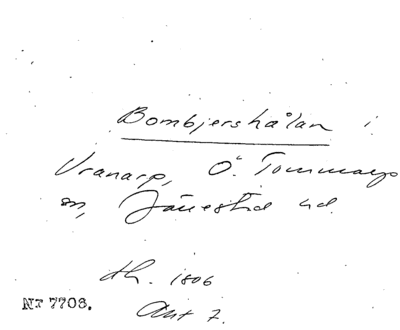 Bombjershålan i
Vranarp, Ö. Tommarps
sn, Järrestad hd.
th. 1806
Akt 7.
NT 7706.